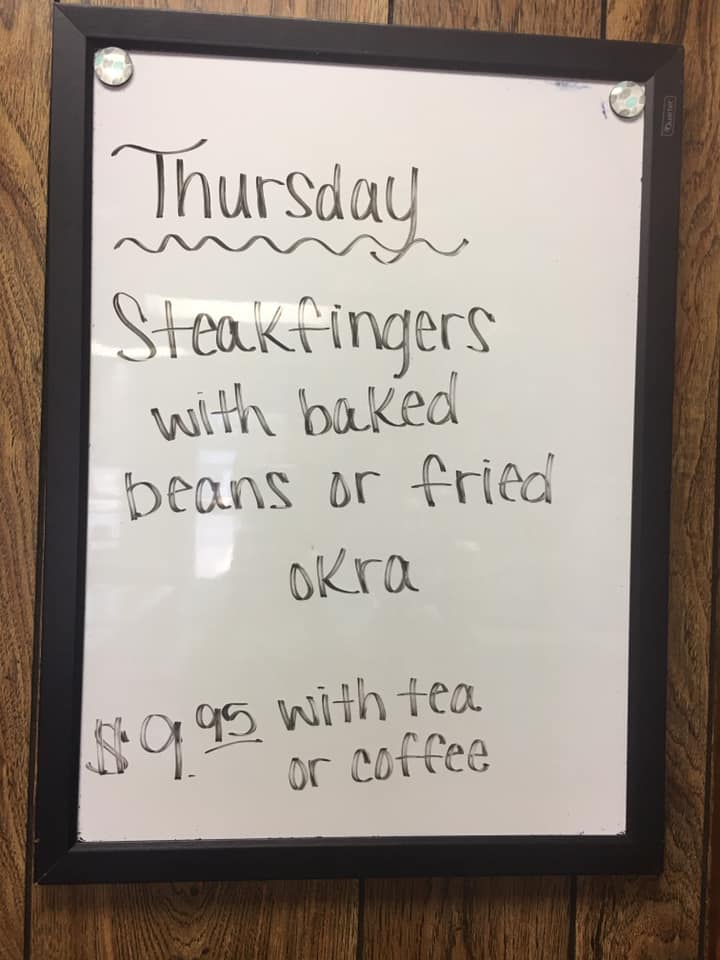 Thursday
Steakfingers
with baked
beans or fried
okra
$9.95 with tea
or coffee
Quartet